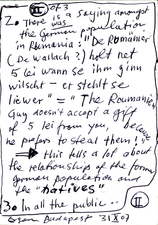 II of 3
2. There is a saying amongst
was
the German population
in Rumania: "De Romäner
(De Wallach?) helt net
5 lei wann se ihm ginn
wilscht - er stehlt se
liewer" = "The Roumanian
Guy doesn't accept a gift
of 5 lei from you, because
he prefers to steal them!"
this tells a lot about
the relationships of the form
German population and
the "natives"
3. In all the public..
Budapest 31 X 07
II